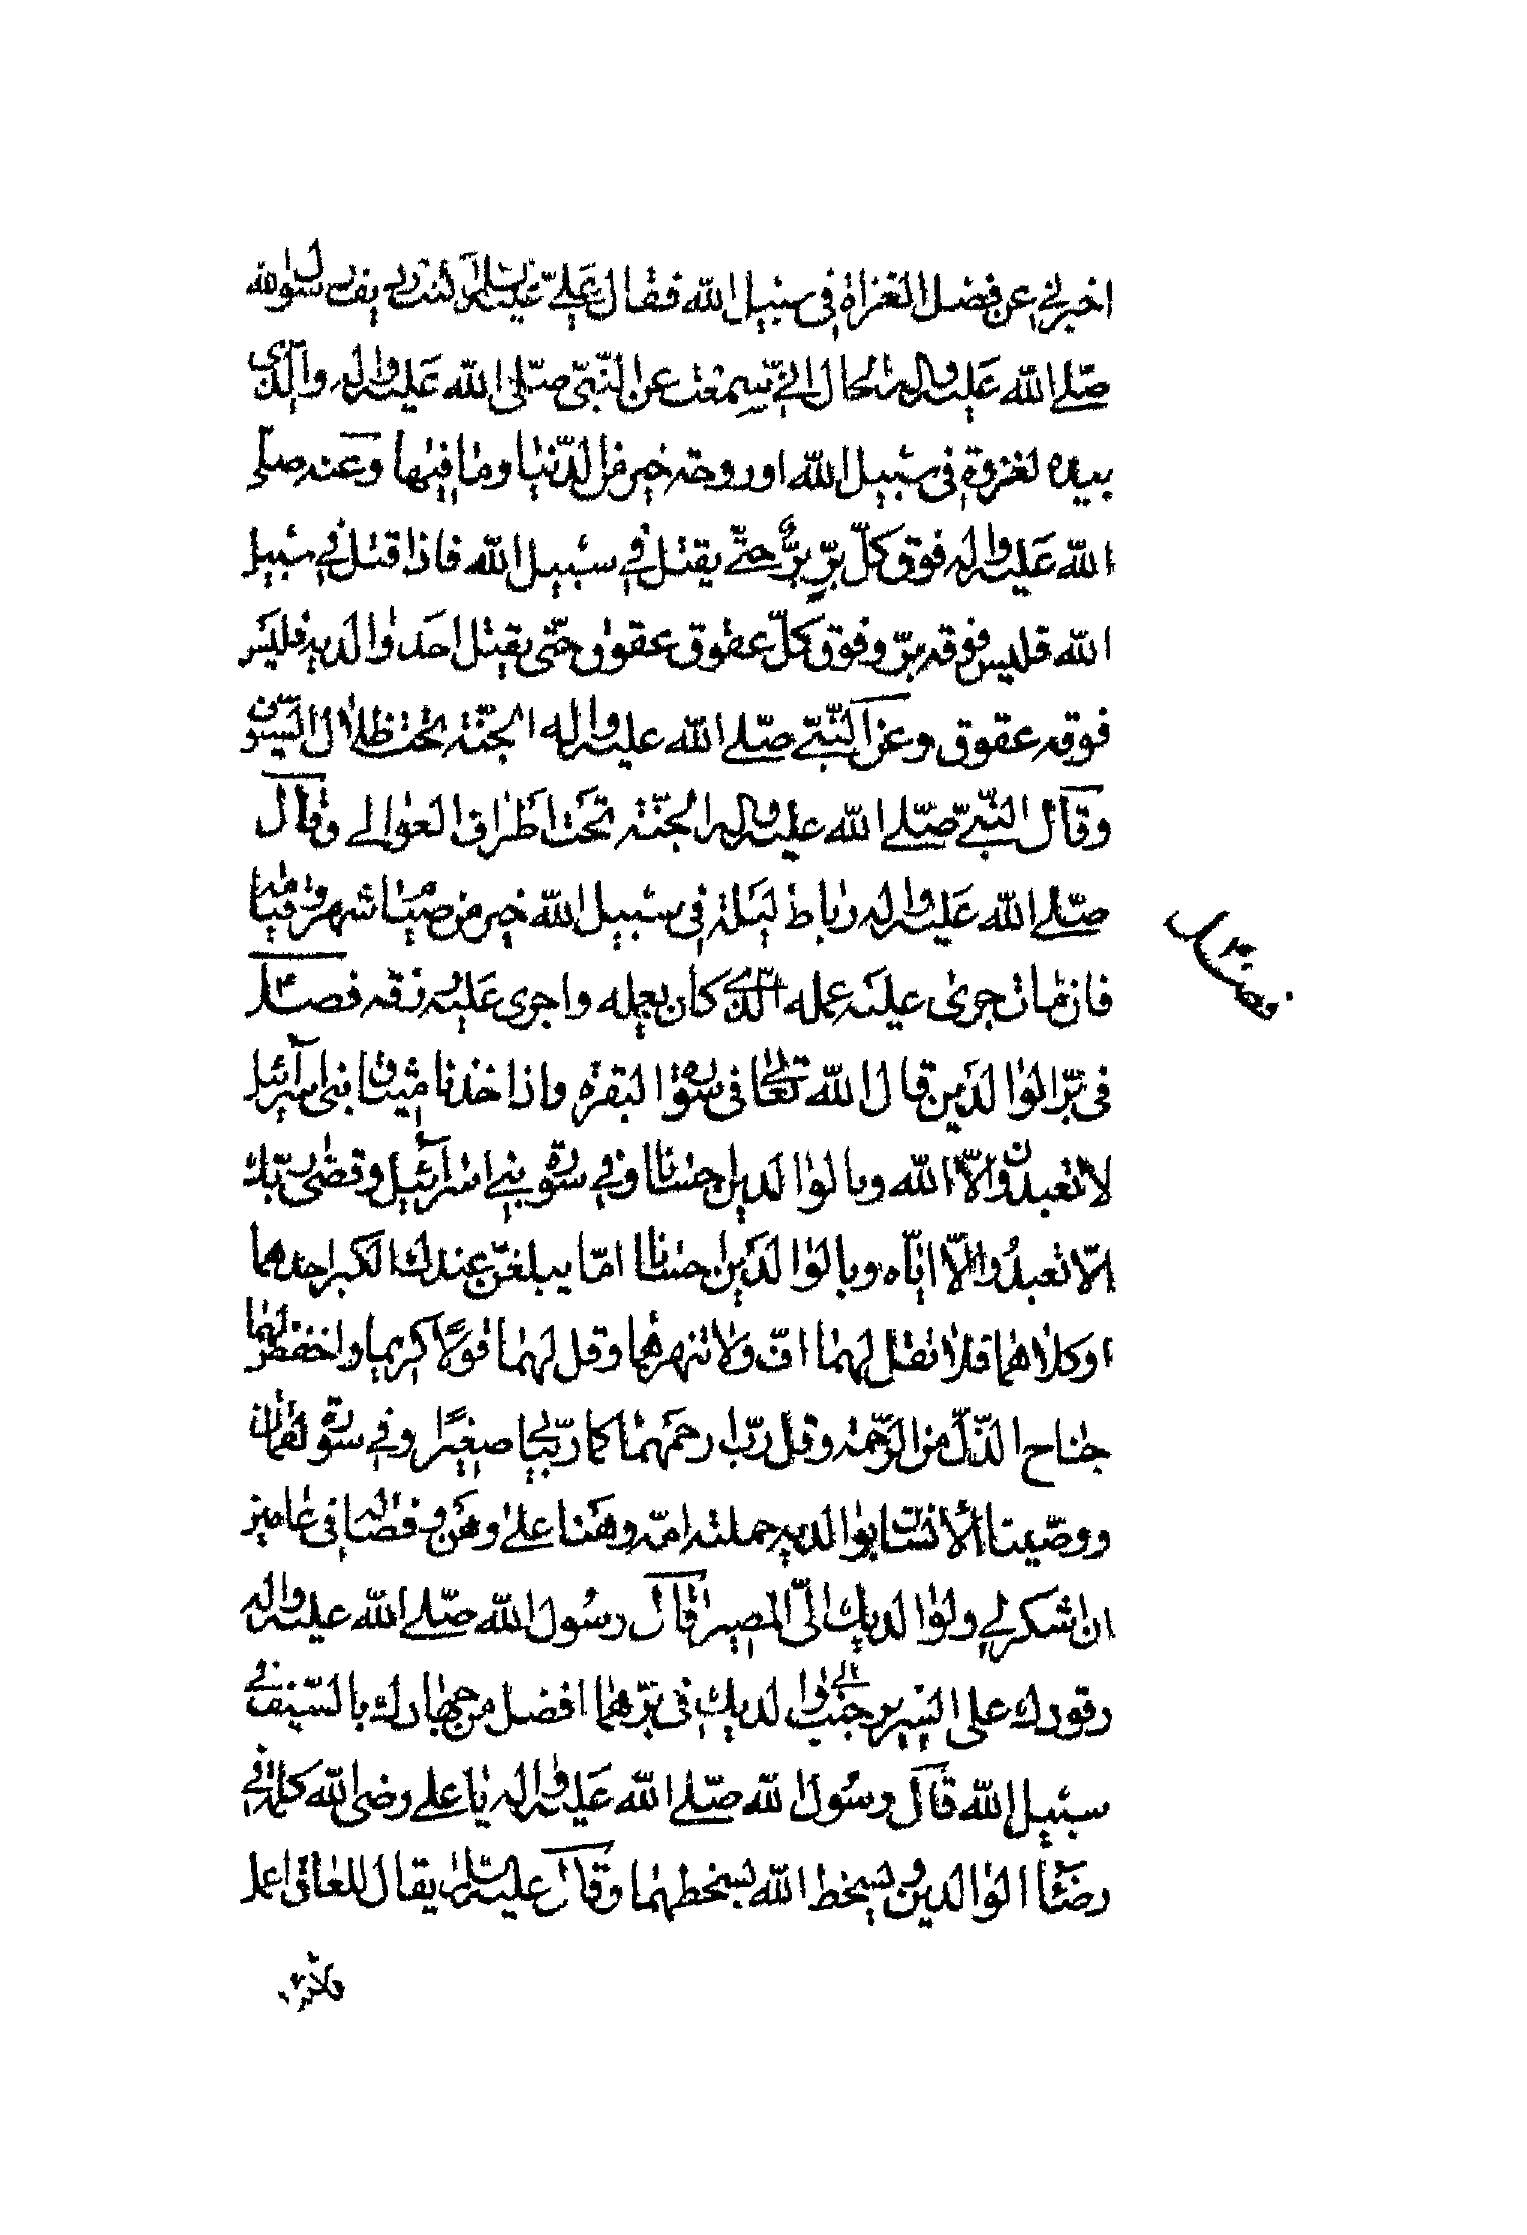 اخبرني عن فضل الغزاة في سبيل الله فقال علي عليه السلام كنت رديف رسول الله
صلى الله عليه واله قال اني سمعت عن النبي صلى الله عليه واله والذي
بيده لغزوة في سبيل الله او روحة خير من الدنيا وما فيها وعنه صلى
الله عليه واله فوق كل برّ برّ حتى يقتل في سبيل الله فاذا قتل في سبيل
الله فليس فوقه برّ وفوق كلّ عقوق عقوق حتى يقتل احد والديه فليس
فوقه عقوق وعن النبي صلى الله عليه واله الجنّة تحت ظلال السيوف
وقال النبيّ صلى الله عليه واله الجنّة تحت اطراف العوالي وقال
صلى الله عليه واله رباط ليلة في سبيل الله خير من صيام شهر وقيامه
فان مات جرى عليه عمله الذي كان يعمله واجرى عليه رزقه فصل
فصل
في برّ الوالدين قال الله تعالى في سورة البقرة واذ اخذنا ميثاق بني اسرائيل
لا تعبدون الّا الله وبالوالدين احسانا وفي سورة بني اسرائيل وقضى ربّك
الّا تعبدُوا الّا ايّاه وبالوالدين احسانا امّا يبلغنّ عندك الكبر احدهما
او كلاهما فلا تقل لهما افّ ولا تنهرهما وقل لهما قولًا كريما واخفض لهما
جناح الذّلّ من الرّحمة وقل ربّ ارحمهما كما ربّياني صغيرًا وفي سورة لقمان
ووصّينا الانسان بوالديه حملته امّه وهنا على وهن وفصاله في عامين
ان اشكر لي ولوالديك اليّ المصير قال رسول الله صلى الله عليه واله
رقودك على السرير جنب والديك في برّهما افضل من جهادك بالسّيف في
سبيل الله قال رسول الله صلى الله عليه واله يا علي رضى الله كله في
رضاء الوالدين وسخط الله بسخطهما وقال عليه السلام يقال للعاق اعمل